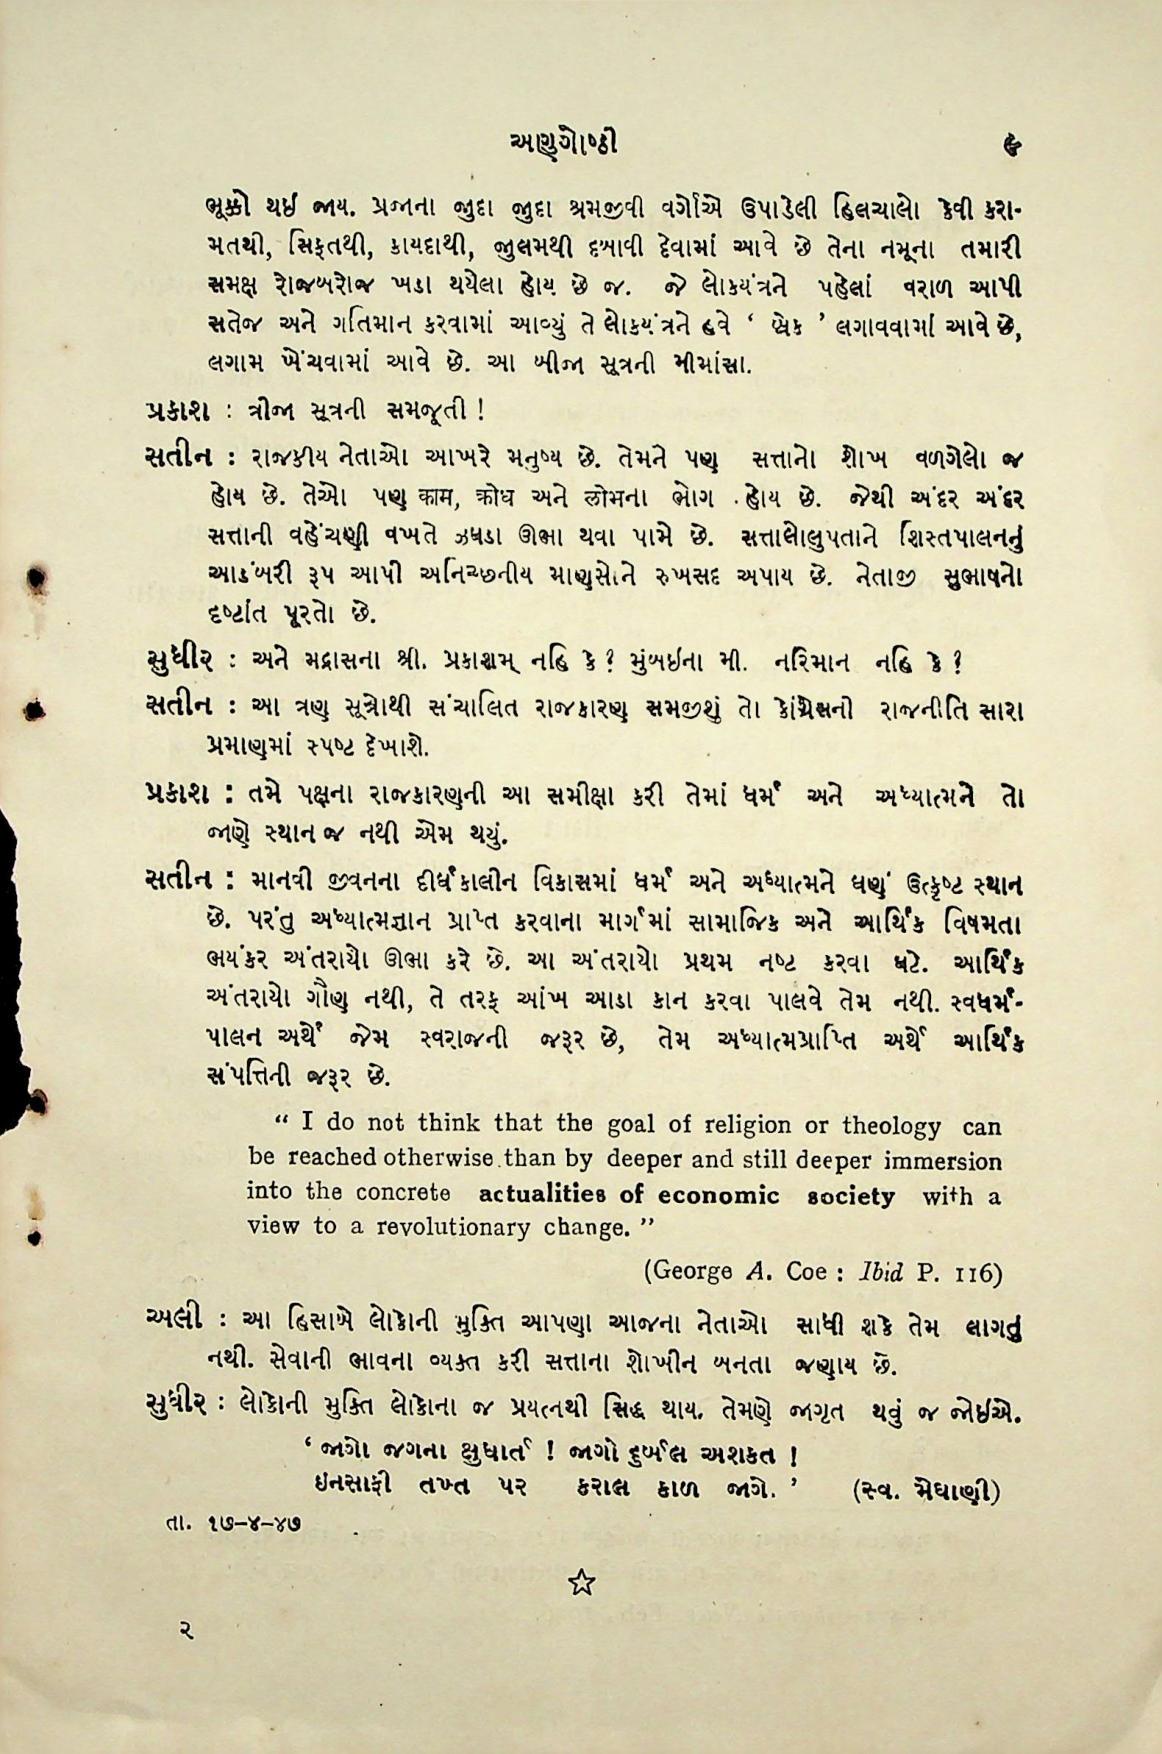 અણુગોષ્ઠી ૯
ભૂક્કો થઈ જાય. પ્રજાના જુદા જુદા શ્રમજીવી વર્ગોએ ઉપાડેલી હિલચાલો કેવી કરા-
મતથી, સિફતથી, કાયદાથી, જુલમથી દબાવી દેવામાં આવે છે તેના નમૂના તમારી
સમક્ષ રોજબરોજ ખડા થયેલા હોય છે જ. જે લોકયંત્રને પહેલાં વરાળ આપી
સતેજ અને ગતિમાન કરવામાં આવ્યું તે લોકયંત્રને હવે ‘ બ્રેક ’ લગાવવામાં આવે છે,
લગામ ખેંચવામાં આવે છે. આ બીજા સૂત્રની મીમાંસા.
પ્રકાશ : ત્રીજા સૂત્રની સમજૂતી !
સતીન : રાજકીય નેતાઓ આખરે મનુષ્ય છે. તેમને પણ સત્તાનો શોખ વળગેલો જ
હોય છે. તેઓ પણ काम, क्रोध અને लोभના ભોગ હોય છે. જેથી અંદર અંદર
સત્તાની વહેંચણી વખતે ઝઘડા ઊભા થવા પામે છે. સત્તાલોલુપતાને શિસ્તપાલનનું
આડંબરી રૂપ આપી અનિચ્છનીય માણસોને રુખસદ અપાય છે. નેતાજી સુભાષનો
દૃષ્ટાંત પૂરતો છે.
સુધીર : અને મદ્રાસના શ્રી. પ્રકાશમ્ નહિ કે ? મુંબઇના મી. નરિમાન નહિ કે ?
સતીન : આ ત્રણ સૂત્રોથી સંચાલિત રાજકારણ સમજીશું તો કોંગ્રેસની રાજનીતિ સારા
પ્રમાણમાં સ્પષ્ટ દેખાશે.
પ્રકાશ : તમે પક્ષના રાજકારણની આ સમીક્ષા કરી તેમાં ધર્મ અને અધ્યાત્મને તો
જાણે સ્થાન જ નથી એમ થયું.
સતીન : માનવી જીવનના દીર્ઘકાલીન વિકાસમાં ધર્મ અને અધ્યાત્મને ઘણું ઉત્કૃષ્ટ સ્થાન
છે. પરંતુ અધ્યાત્મજ્ઞાન પ્રાપ્ત કરવાના માર્ગમાં સામાજિક અને આર્થિક વિષમતા
ભયંકર અંતરાયો ઊભા કરે છે. આ અંતરાયો પ્રથમ નષ્ટ કરવા ઘટે. આર્થિક
અંતરાયો ગૌણ નથી, તે તરફ આંખ આડા કાન કરવા પાલવે તેમ નથી. સ્વધર્મ-
પાલન અર્થે જેમ સ્વરાજની જરૂર છે, તેમ અધ્યાત્મપ્રાપ્તિ અર્થે આર્થિક
સંપત્તિની જરૂર છે.
“ I do not think that the goal of religion or theology can
be reached otherwise than by deeper and still deeper immersion
into the concrete actualities of economic society with a
view to a revolutionary change. ”
(George A. Coe : Ibid P. 116)
અલી : આ હિસાબે લોકોની મુક્તિ આપણા આજના નેતાઓ સાધી શકે તેમ લાગતું
નથી. સેવાની ભાવના વ્યક્ત કરી સત્તાના શોખીન બનતા જણાય છે.
સુધીર : લોકોની મુક્તિ લોકોના જ પ્રયત્નથી સિદ્ધ થાય. તેમણે જાગૃત થવું જ જોઇએ.
‘ જાગો જગના ક્ષુધાર્ત ! જાગો દુર્બલ અશક્ત !
ઇનસાફી તખ્ત પર કરાલ કાળ જાગે. ’ (સ્વ. મેઘાણી)
તા. ૧૭-૪-૪૭
૨